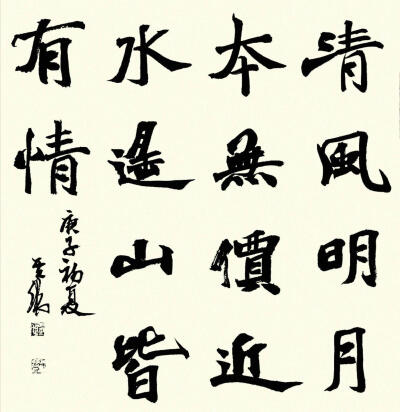 清風明月
本無價近
水遥山皆
有情
庚子初夏